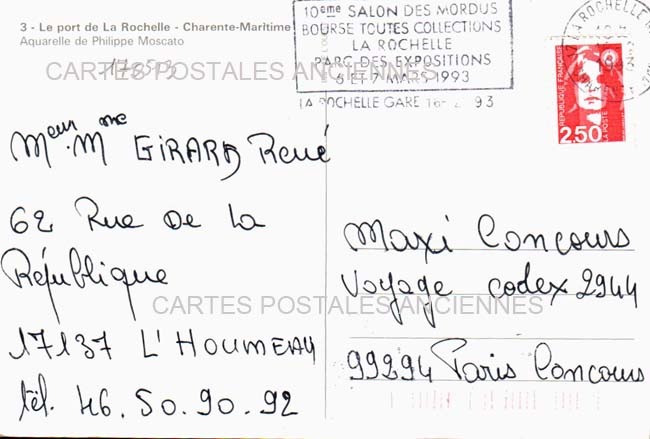 3 - Le port de La Rochelle - Charente-Maritime
Aquarelle de Philippe Moscato
178503
CARTES POSTALES ANCIENNES
10eme SALON DES MORDUS
BOURSE TOUTES COLLECTIONS
LA ROCHELLE
PARC DES EXPOSITIONS
6 ET 7 MARS 1993
LA ROCHELLE GARE 93
LA ROCHELLE
RÉPUBLIQUE FRANÇAISE
LA POSTE
2,50
Meur. Mme GIRARD René
62 Rue De La
République
17137 L'HOUMEAU
tél. 46.50.90.92
Maxi Concours
Voyage codex 2944
99294 Paris Concours
CARTES POSTALES ANCIENNES